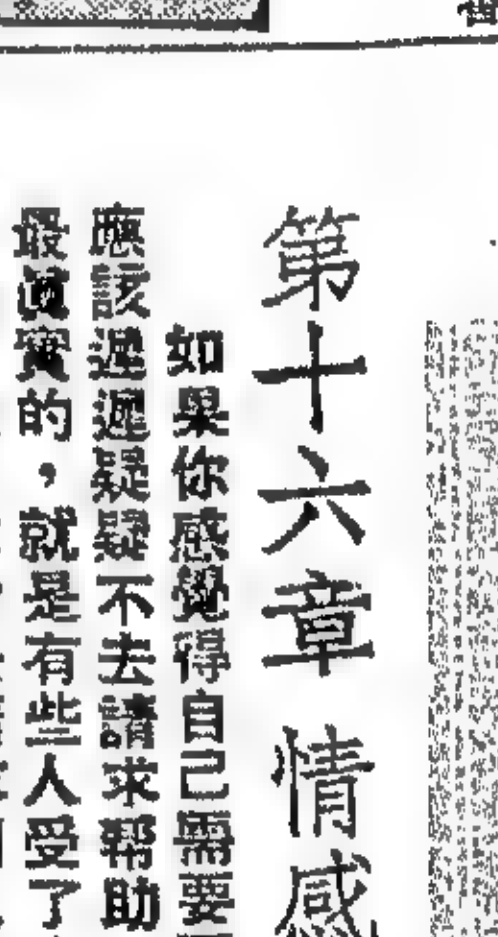 第十六章 情感
如果你感覺得自己需要
應該遲遲疑疑不去請求帮助
最真實的，就是有些人受了